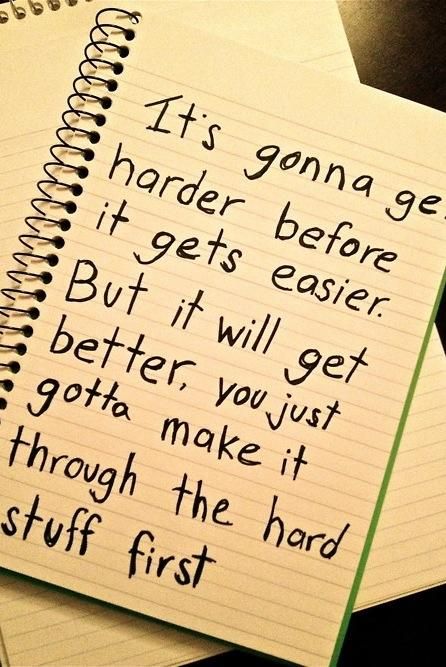 It's gonna ge
harder before
it gets easier.
But it will get
better, you just
gotta make it
through the hard
stuff first